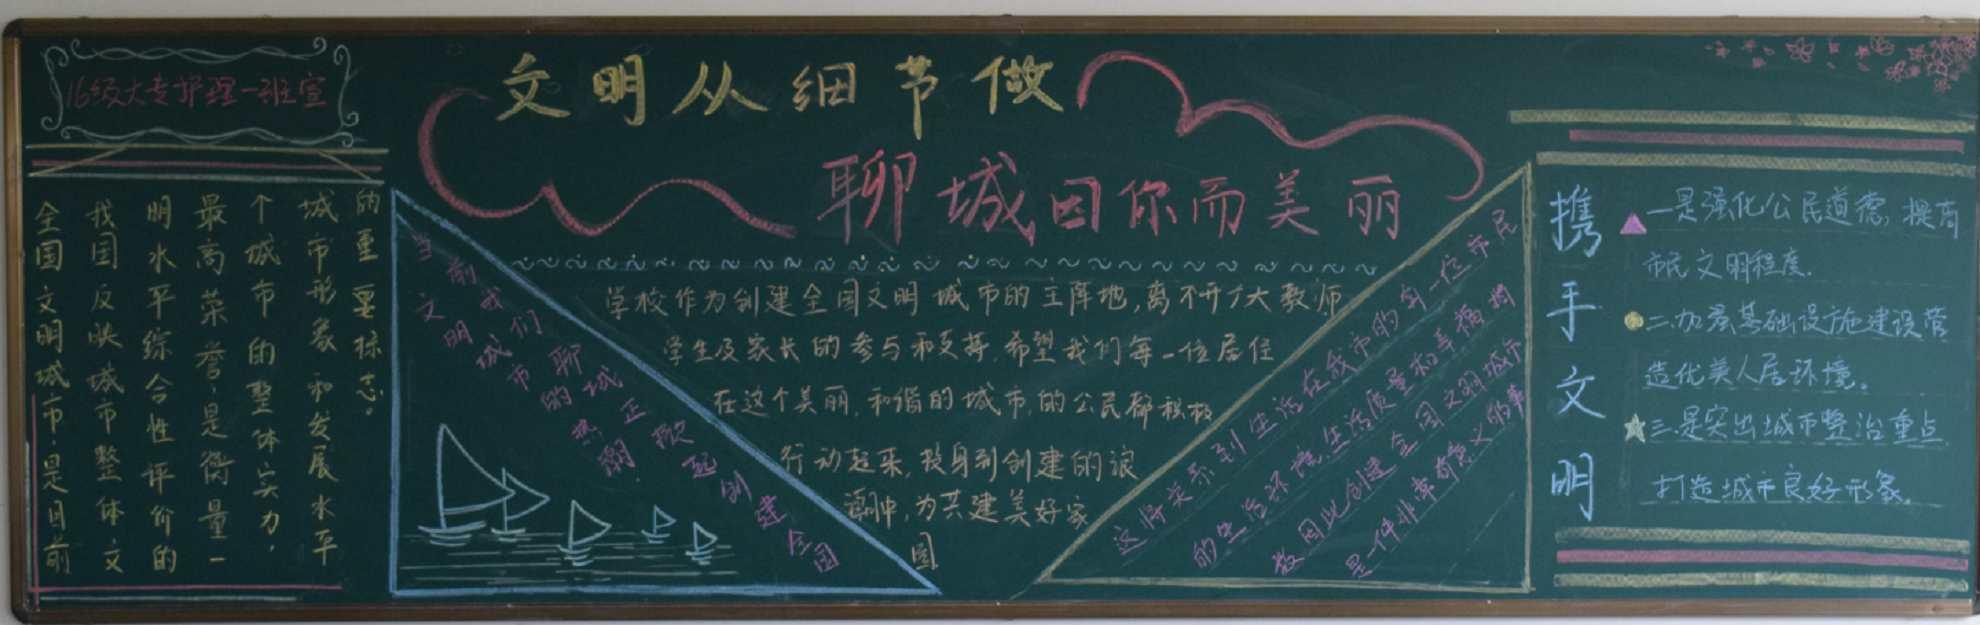 16级大专护理一班宣
全国文明城市是目前
我国反映城市整体文
明水平综合性评价的
最高荣誉,是衡量一
个城市的整体实力,
城市形象和发展水平
的重要标志。
文明从细节做
聊城因你而美丽
当前我们聊城正掀起创建全国
文明城市的热潮.
学校作为创建全国文明城市的主阵地,离不开广大教师
学生及家长的参与和支持.希望我们每一位居住
在这个美丽.和谐的城市.的公民都积极
行动起来,投身到创建的浪
潮中,为共建美好家
园.
这将关系到生活在我市的每一位市民
的生活环境.生活质量和幸福指
数因此创建全国文明城市
是一件非常有意义的事
携手文明
一是强化公民道德,提高
市民文明程度.
二.加强基础设施建设营
造优美人居环境。
三.是突出城市整治重点
打造城市良好形象.